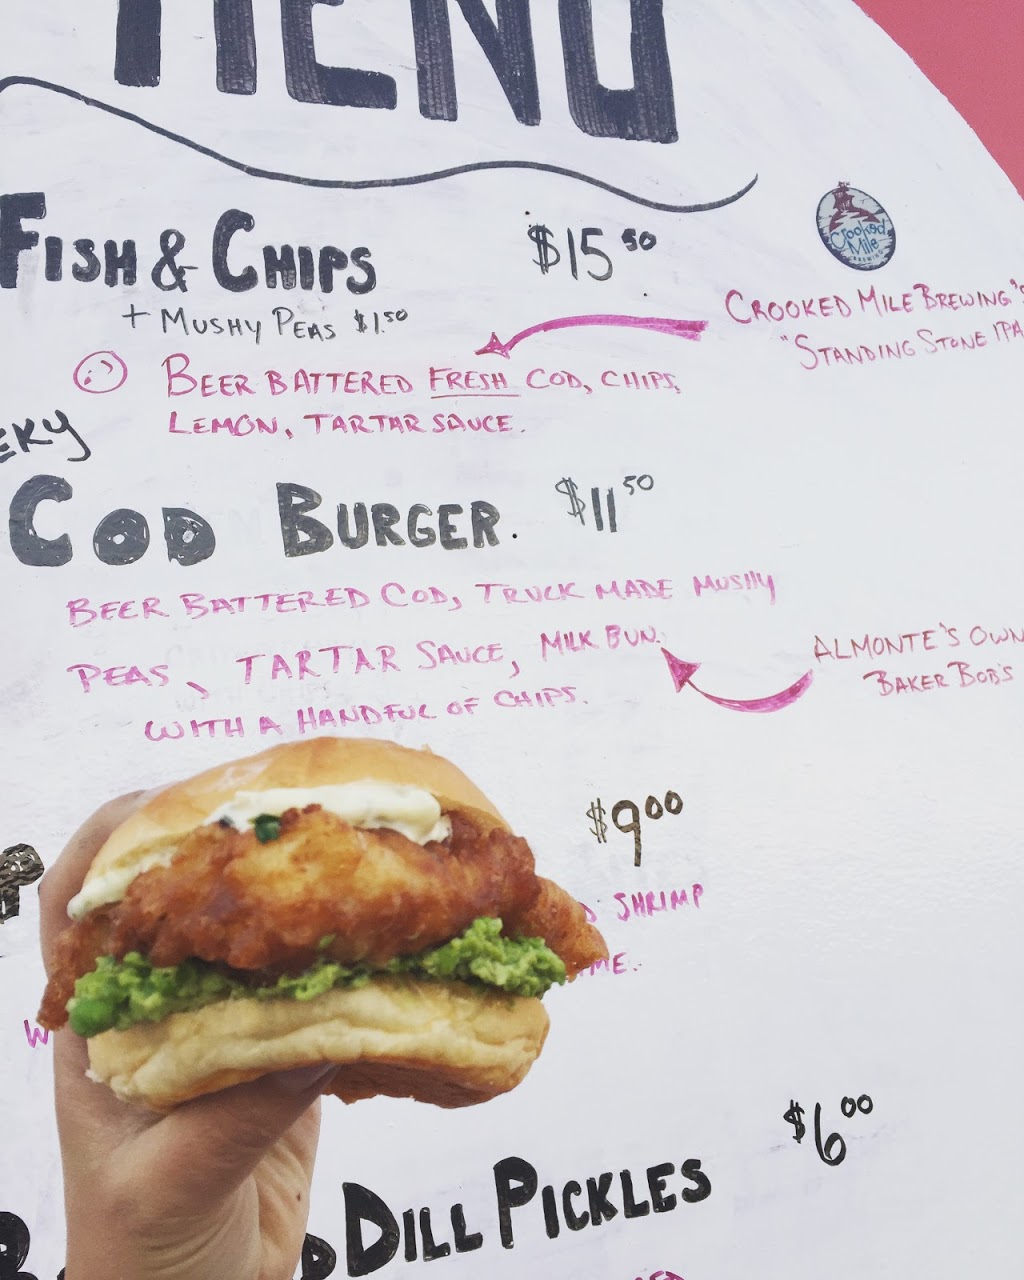 MENU
FISH & CHIPS $15.50
+ MUSHY PEAS $1.50
Crooked Mile BREWING
CROOKED MILE BREWING'S
"STANDING STONE IPA
BEER BATTERED FRESH COD, CHIPS,
LEMON, TARTAR SAUCE.
EKY
COD BURGER. $11.50
BEER BATTERED COD, TRUCK MADE MUSHY
PEAS, TARTAR SAUCE, MILK BUN.
WITH A HANDFUL OF CHIPS.
ALMONTE'S OWN
BAKER BOB'S
$9.00
SHRIMP
$6.00
DILL PICKLES